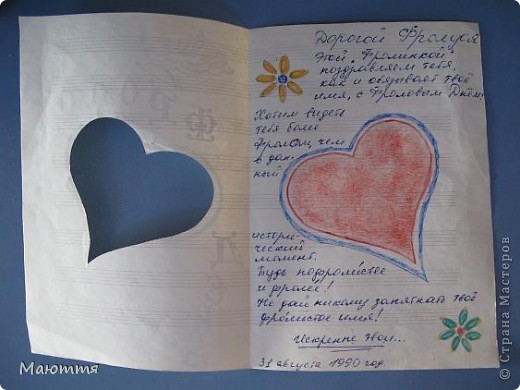 Дорогой Фролуся
Этой „Фролинкой"
поздравляем тебя,
как и обязывает твоё
имя, с Фроловым Днём!
Хотим видеть
тебя более
Фролом, чем
в дан-
ный
истори-
ческий
момент.
Будь пофролистее
и фролее!
Не дай никому запятнать твоё
фролистое имя!
Искренне твои...
31 августа 1990 год.
Маюття
© Страна Мастеров